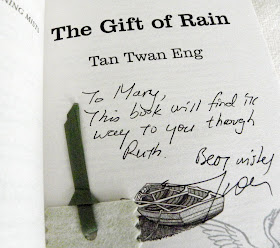 NING MISTS
The Gift of Rain
Tan Twan Eng
To Mary,
This book will find its
way to you though
Ruth.
Best wishes